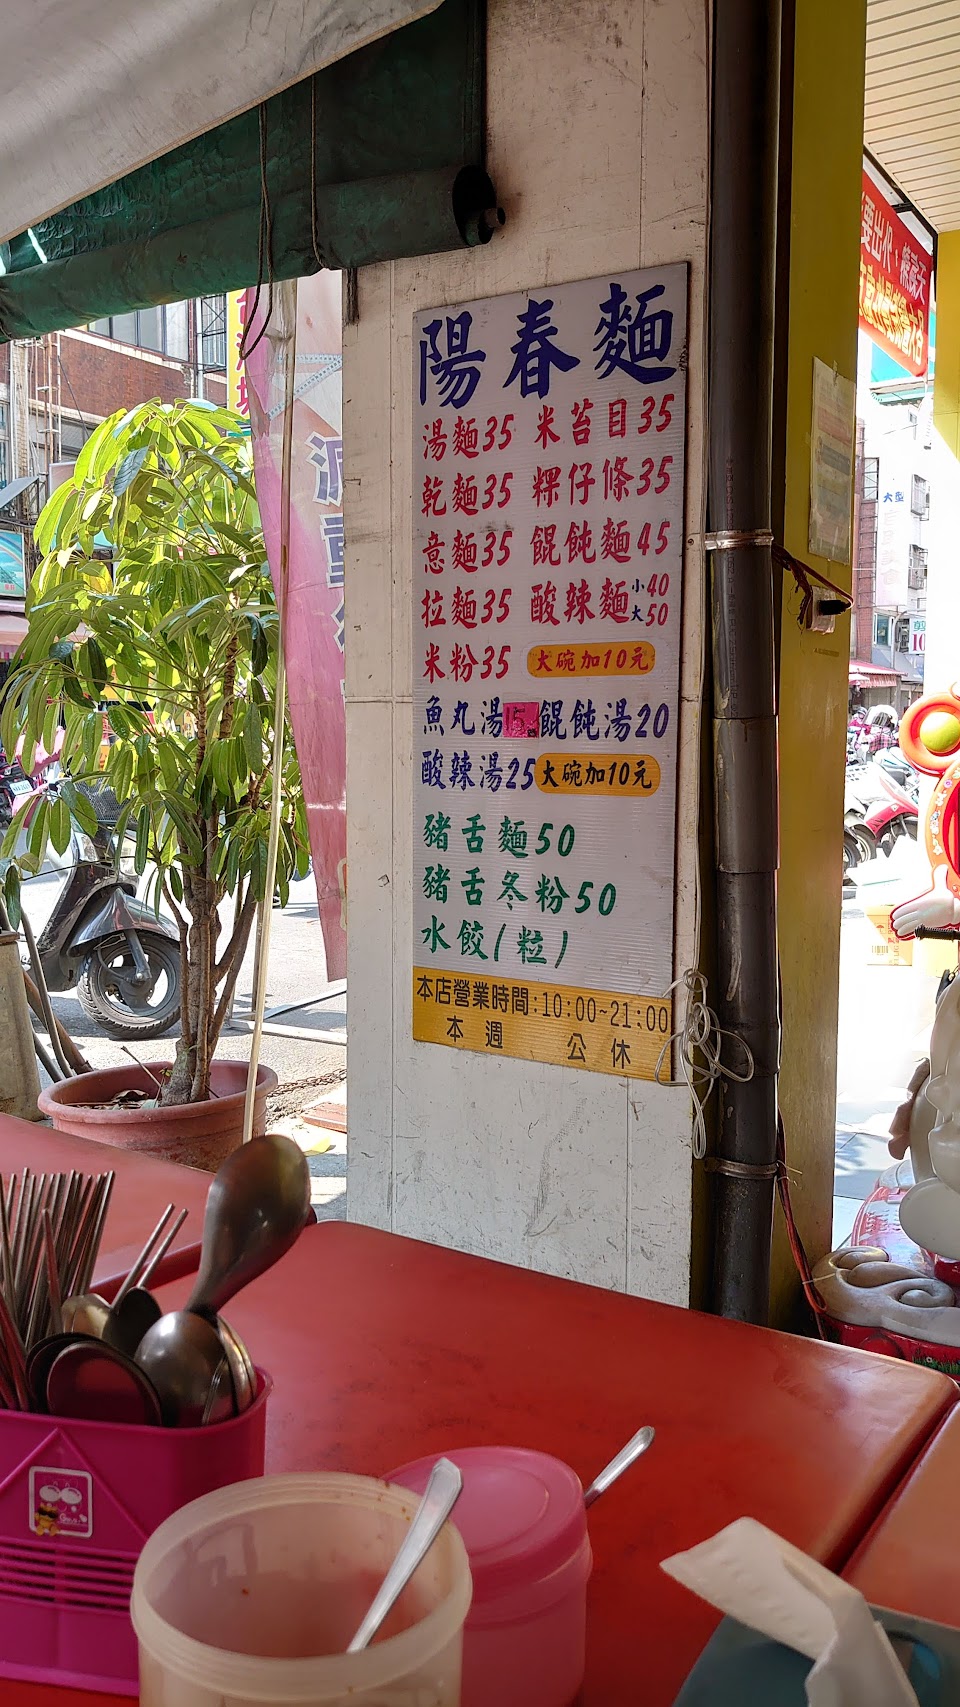 陽春麵
湯麵35 米苔目35
乾麵35 粿仔條35
意麵35 餛飩麵45
拉麵35 酸辣麵小40大50
米粉35 大碗加10元
魚丸湯15 餛飩湯20
酸辣湯25 大碗加10元
豬舌麵50
豬舌冬粉50
水餃(粒)
本店營業時間:10:00~21:00
本週 公休
大型